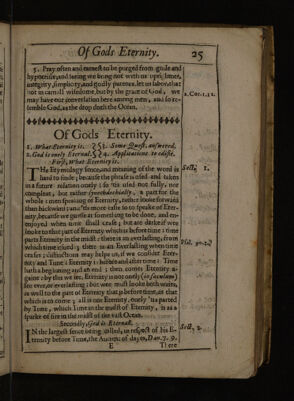 Of Gods Eternity. 25
5. Pray often and earnest to be purged from guile and
hypocrisie, and seeing we bring not with us uprightness,
integrity, simplicity, and godly pureness, let us labor, that
not in carnall wisedome, but by the grace of God, we
may have our conversation here among men, and so re-
semble God, as the drop doth the Ocean.
2.Cor.1.12.
Of Gods Eternity.
1. What Eternity is. 3. Some Quest. answered.
2. God is onely Eternal. 4. Applications to edifie.
First, What Eternity is.
THe Etymology sence, and meaning of the word is
hard to finde; because the phrase is used and taken
in a future relation onely; so 'tis used not fully, nor
compleat, but rather synechdochically, a part for the
whole: men speaking of Eternity, rather looke forward
than backward; and 'tis more easie so to speake of Eter-
nity, because we guesse at something to be done, and en-
joyed when time shall cease; but are darke if we
looke to that part of Eternity which is before time: time
parts Eternity in the midst: there is an everlasting, from
which time issued; there is an Everlasting when time
ceases; distinctions may help us, if we consider Eter-
nity and Time: Eternity is before and after time: Time
hath a beginning and an end; then comes Eternity a-
gaine: by this we see, Eternity is not onely (in seculum)
for ever, or everlasting; but wee must looke both waies,
as well to the part of Eternity that is before time, as that
which is to come; all is one Eternity, onely 'tis parted
by Time, which Time in the midst of Eternity, is as a
sparke of fire in the midst of the vast Ocean.
Sect. 1.
Psal. 90.2.
Secondly, God is Eternal.
IN the largest sence being called, in respect of his E-
ternity before Time, the Ancient of dayes, Dan. 7. 9.
Sect. 2.
E There